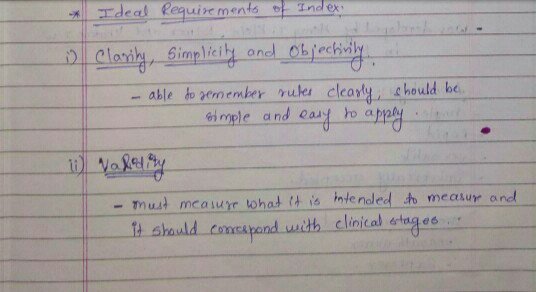 * Ideal Requirements of Index.
i) Clarity, Simplicity and Objectivity.
- able to remember rules clearly, should be
simple and easy to apply.
ii) Validity
- must measure what it is intended to measure and
it should correspond with clinical stages.